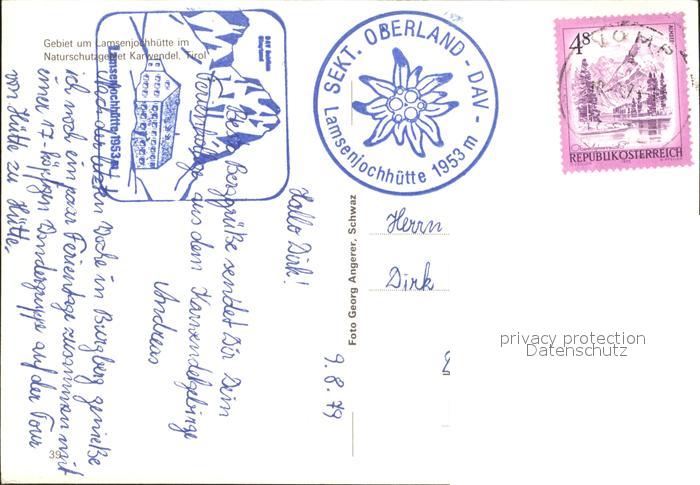 Gebiet um Lamsenjochhütte im
Naturschutzgebiet Karwendel, Tirol
Lamsenjochhütte 1953 m
SEKT. OBERLAND - DAV -
Lamsenjochhütte 1953 m
4S
REPUBLIK ÖSTERREICH
Foto Georg Angerer, Schwaz
9.8.79
Hallo Dirk!
Berggrüße sendet Dir Dein
aus dem Karwendelgebirge
Andreas
Nach der letzten Woche in Burgberg genieße
ich noch ein paar Ferientage zusammen mit
einer 17-köpfigen Wandergruppe auf der Tour
von Hütte zu Hütte.
Herrn
Dirk
39
privacy protection
Datenschutz